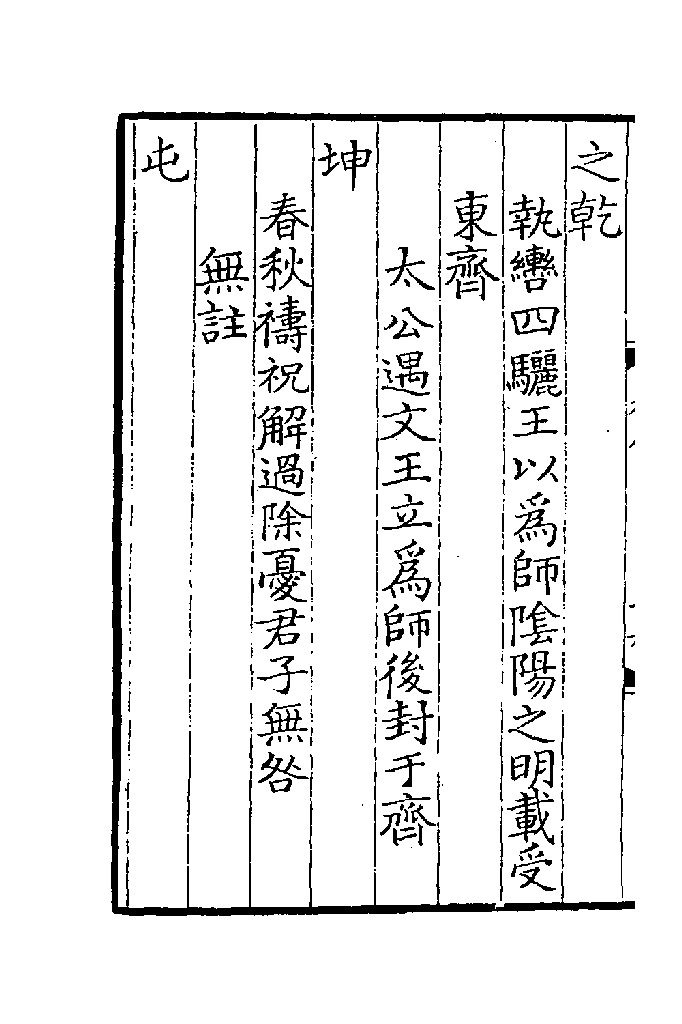 之乾
執轡四驪王以為師隂陽之明載受
東齊
太公遇文王立為師後封于齊
坤
春秋禱祝解過除憂君子無咎
無註
屯